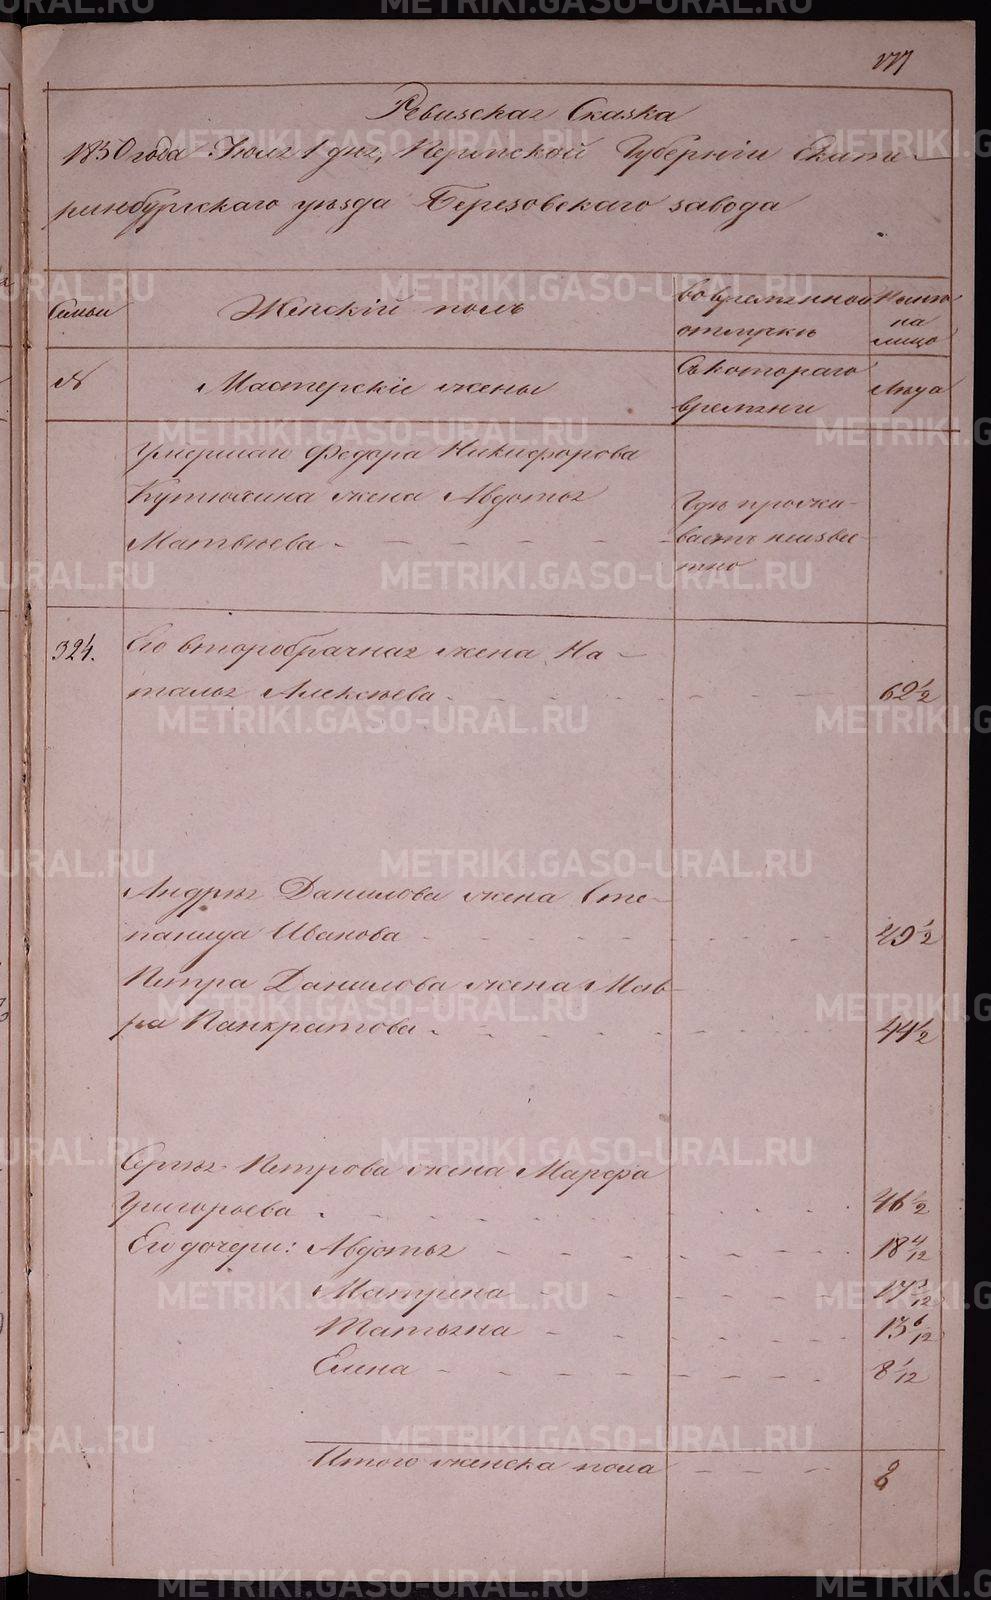 177
Ревизская Сказка
1850 года Июля 1 дня, Пермской Губерніи Екате-
ринбургскаго уѣзда Березовскаго завода
Семьи
Женскій полъ
Во временной
отлучкѣ
Ныне
на
лицо
№
Мастерскіе жены
Съ котораго
времени
Лѣта
Умершаго Федора Никифорова
Кутюхина жена Авдотья
Матвѣева
Гдѣ прожи-
ваетъ неизвѣ-
тно
324.
Его второбрачная жена На-
талья Алексѣева
62 1/2
Андрея Данилова жена Сте-
панида Иванова
49 1/2
Петра Данилова жена Мав-
ра Панкратова
44 1/2
Сергея Петрова жена Марфа
Григорьева
46 1/2
Его дочери: Авдотья
18 4/12
Матрена
17 3/12
Татьяна
13 6/12
Елена
8 1/12
Итого женска пола
8
METRIKI.GASO-URAL.RU